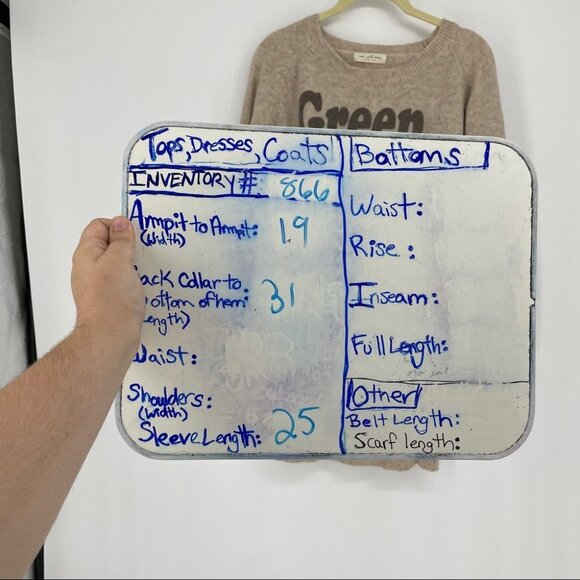 Green
Tops, Dresses, Coats
INVENTORY# 866
Armpit to Armpit: 19
(width)
Back Collar to
Bottom of hem: 31
(Length)
Waist:
Shoulders:
(width)
Sleeve Length: 25
Bottoms
Waist:
Rise:
Inseam:
Full Length:
Other
Belt Length:
Scarf length: